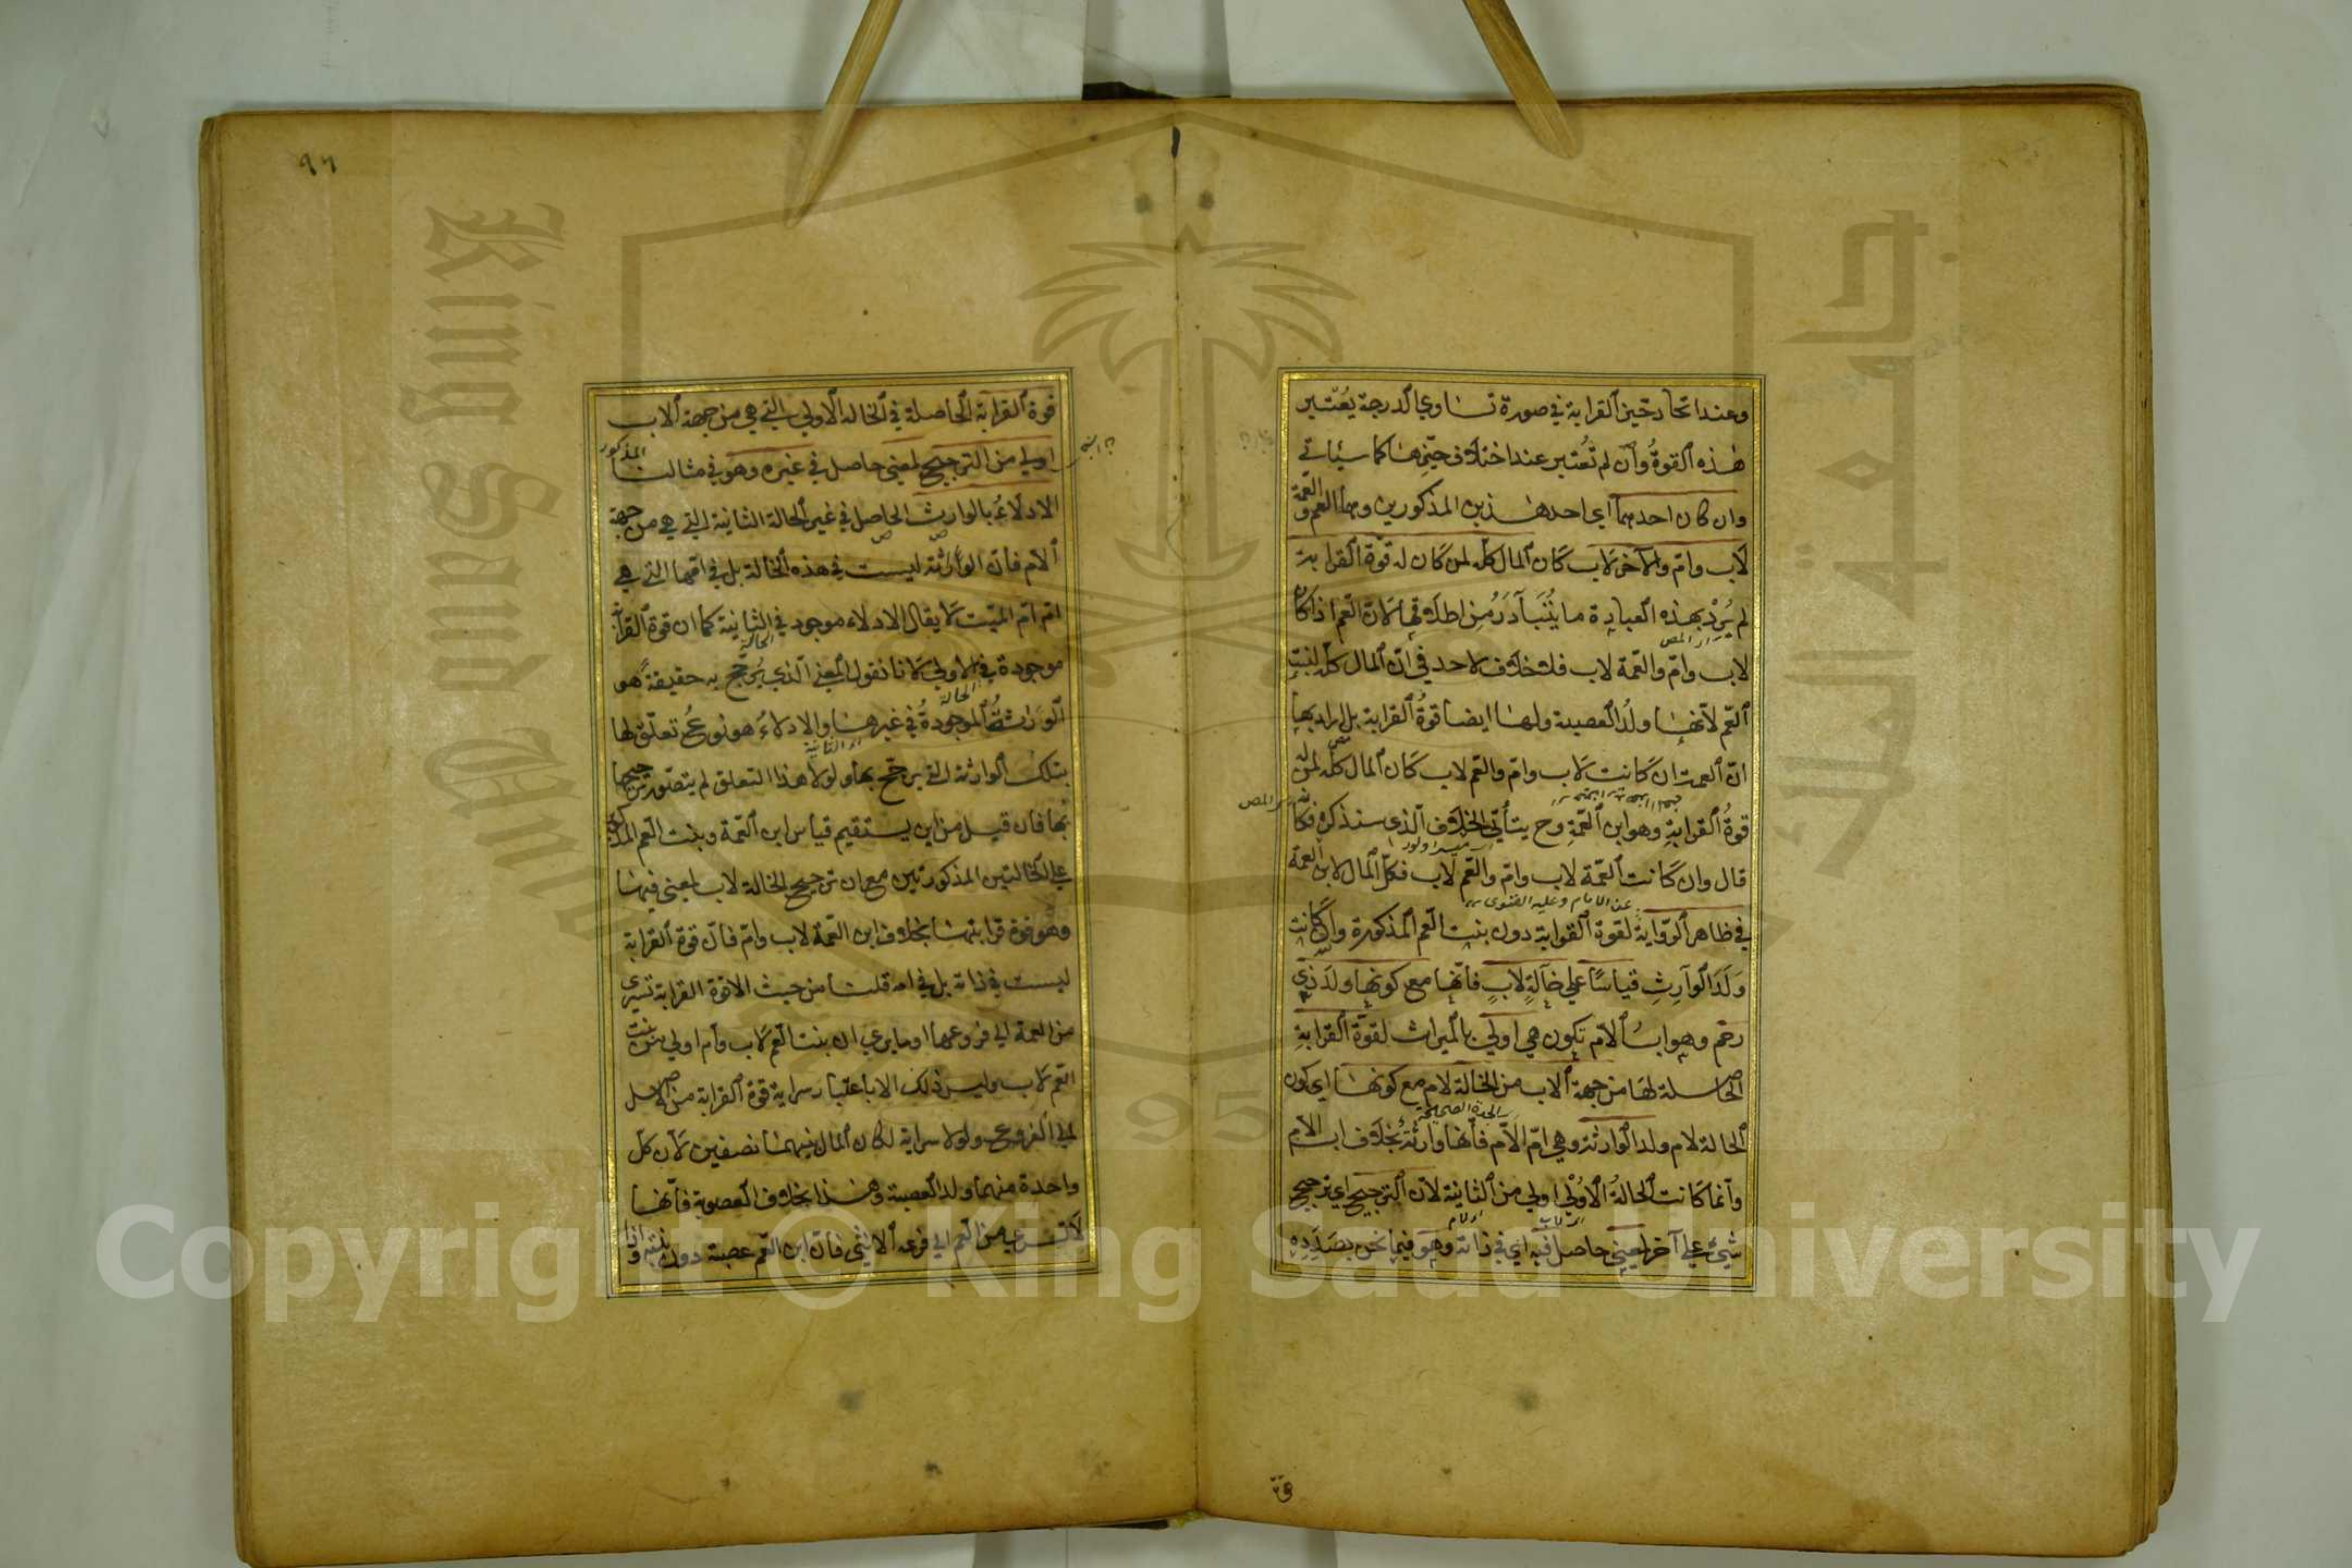 وعند اتحاد حيز القرابة في صورة تساوي الدرجة يعتبر
هذه القوة وان لم تعتبر عند اختلاف حيزهما كما سيأتي
وان كان احدهما اي احد هذين المذكورين وهما العم والعمة
لاب وام والآخر لاب كان المال كله لمن كان له قوة القرابة
لم يرد بهذه العبارة ما يتبادر من اطلاقها لان العم اذا كان
لاب وام والعمة لاب فلا خلاف لاحد في ان المال كله لبنت
العم لانها ولد العصبة ولها ايضا قوة القرابة بل اراد بها
ان العمة ان كانت لاب وام والعم لاب كان المال كله لمن له
قوة القرابة وهو ابن العمة وح يتأتى الخلاف الذي سنذكره فكانه
قال وان كانت العمة لاب وام والعم لاب فكل المال لابن العمة
عند الامام وعليه الفتوى
في ظاهر الرواية لقوة القرابة دون بنت العم المذكورة وان كانت
ولد الوارث قياسا على خالة لاب فانها مع كونها ولد ذي
رحم وهو اب الام تكون هي اولى بالميراث لقوة القرابة
الحاصلة لها من جهة الاب من الخالة لام مع كونها اي كون
الجدة الصحيحة
الخالة لام ولد الوارثة وهي ام الام فانها وارثة بخلاف اب الام
وانما كانت الخالة الاولى اولى من الثانية لان الترجيح اي ترجيح
شيئ على آخر لمعنى حاصل فيه اي في ذاته وهو فيما نحن بصدده
قوة
٩٦
قوة القرابة الحاصلة في الخالة الاولى التي هي من جهة الاب
اولى من الترجيح لمعنى حاصل في غيره وهو في مثالنا المذكور
الادلاء بالوارث الحاصل في غير الحالة الثانية التي هي من جهة
الام فان الوارثة ليست في هذه الخالة بل في امها التي هي
ام ام الميت لا يقال الادلاء موجود في الثانية كما ان قوة القرابة
الخالة
موجودة في الاولى لانا نقول المعنى الذي يرجح به حقيقة هو
الخالة
الوراثة الموجودة في غيرها والادلاء هو نوع تعلق لها
بتلك الوارثة التي يرجح بها ولولا هذا التعلق لم يتصور ترجيحها
بها فان قيل من اين يستقيم قياس ابن العمة وبنت العم المذكورين
على الخالتين المذكورتين مع ان ترجيح الخالة لاب لمعنى فيها
وهو قوة قرابتها بخلاف ابن العمة لاب وام فان قوة القرابة
ليست في ذاته بل في امه قلنا من حيث ان قوة القرابة تسري
من العمة الى فروعها او ما يرى ان بنت العم لاب وام اولى من بنت
العم لاب وليس ذلك الا باعتبار سراية قوة القرابة من الاصل
الى الفروع ولولا سراية لكان المال بينهما نصفين لان كل
واحدة منهما ولد العصبة وهذا بخلاف العصوبة فانها
لا تسري من العم الى فرعه الانثى فان ابن العم عصبة دون بنته واذا
Copyright © King Saud University
King Saud University
جامعة الملك سعود
1957